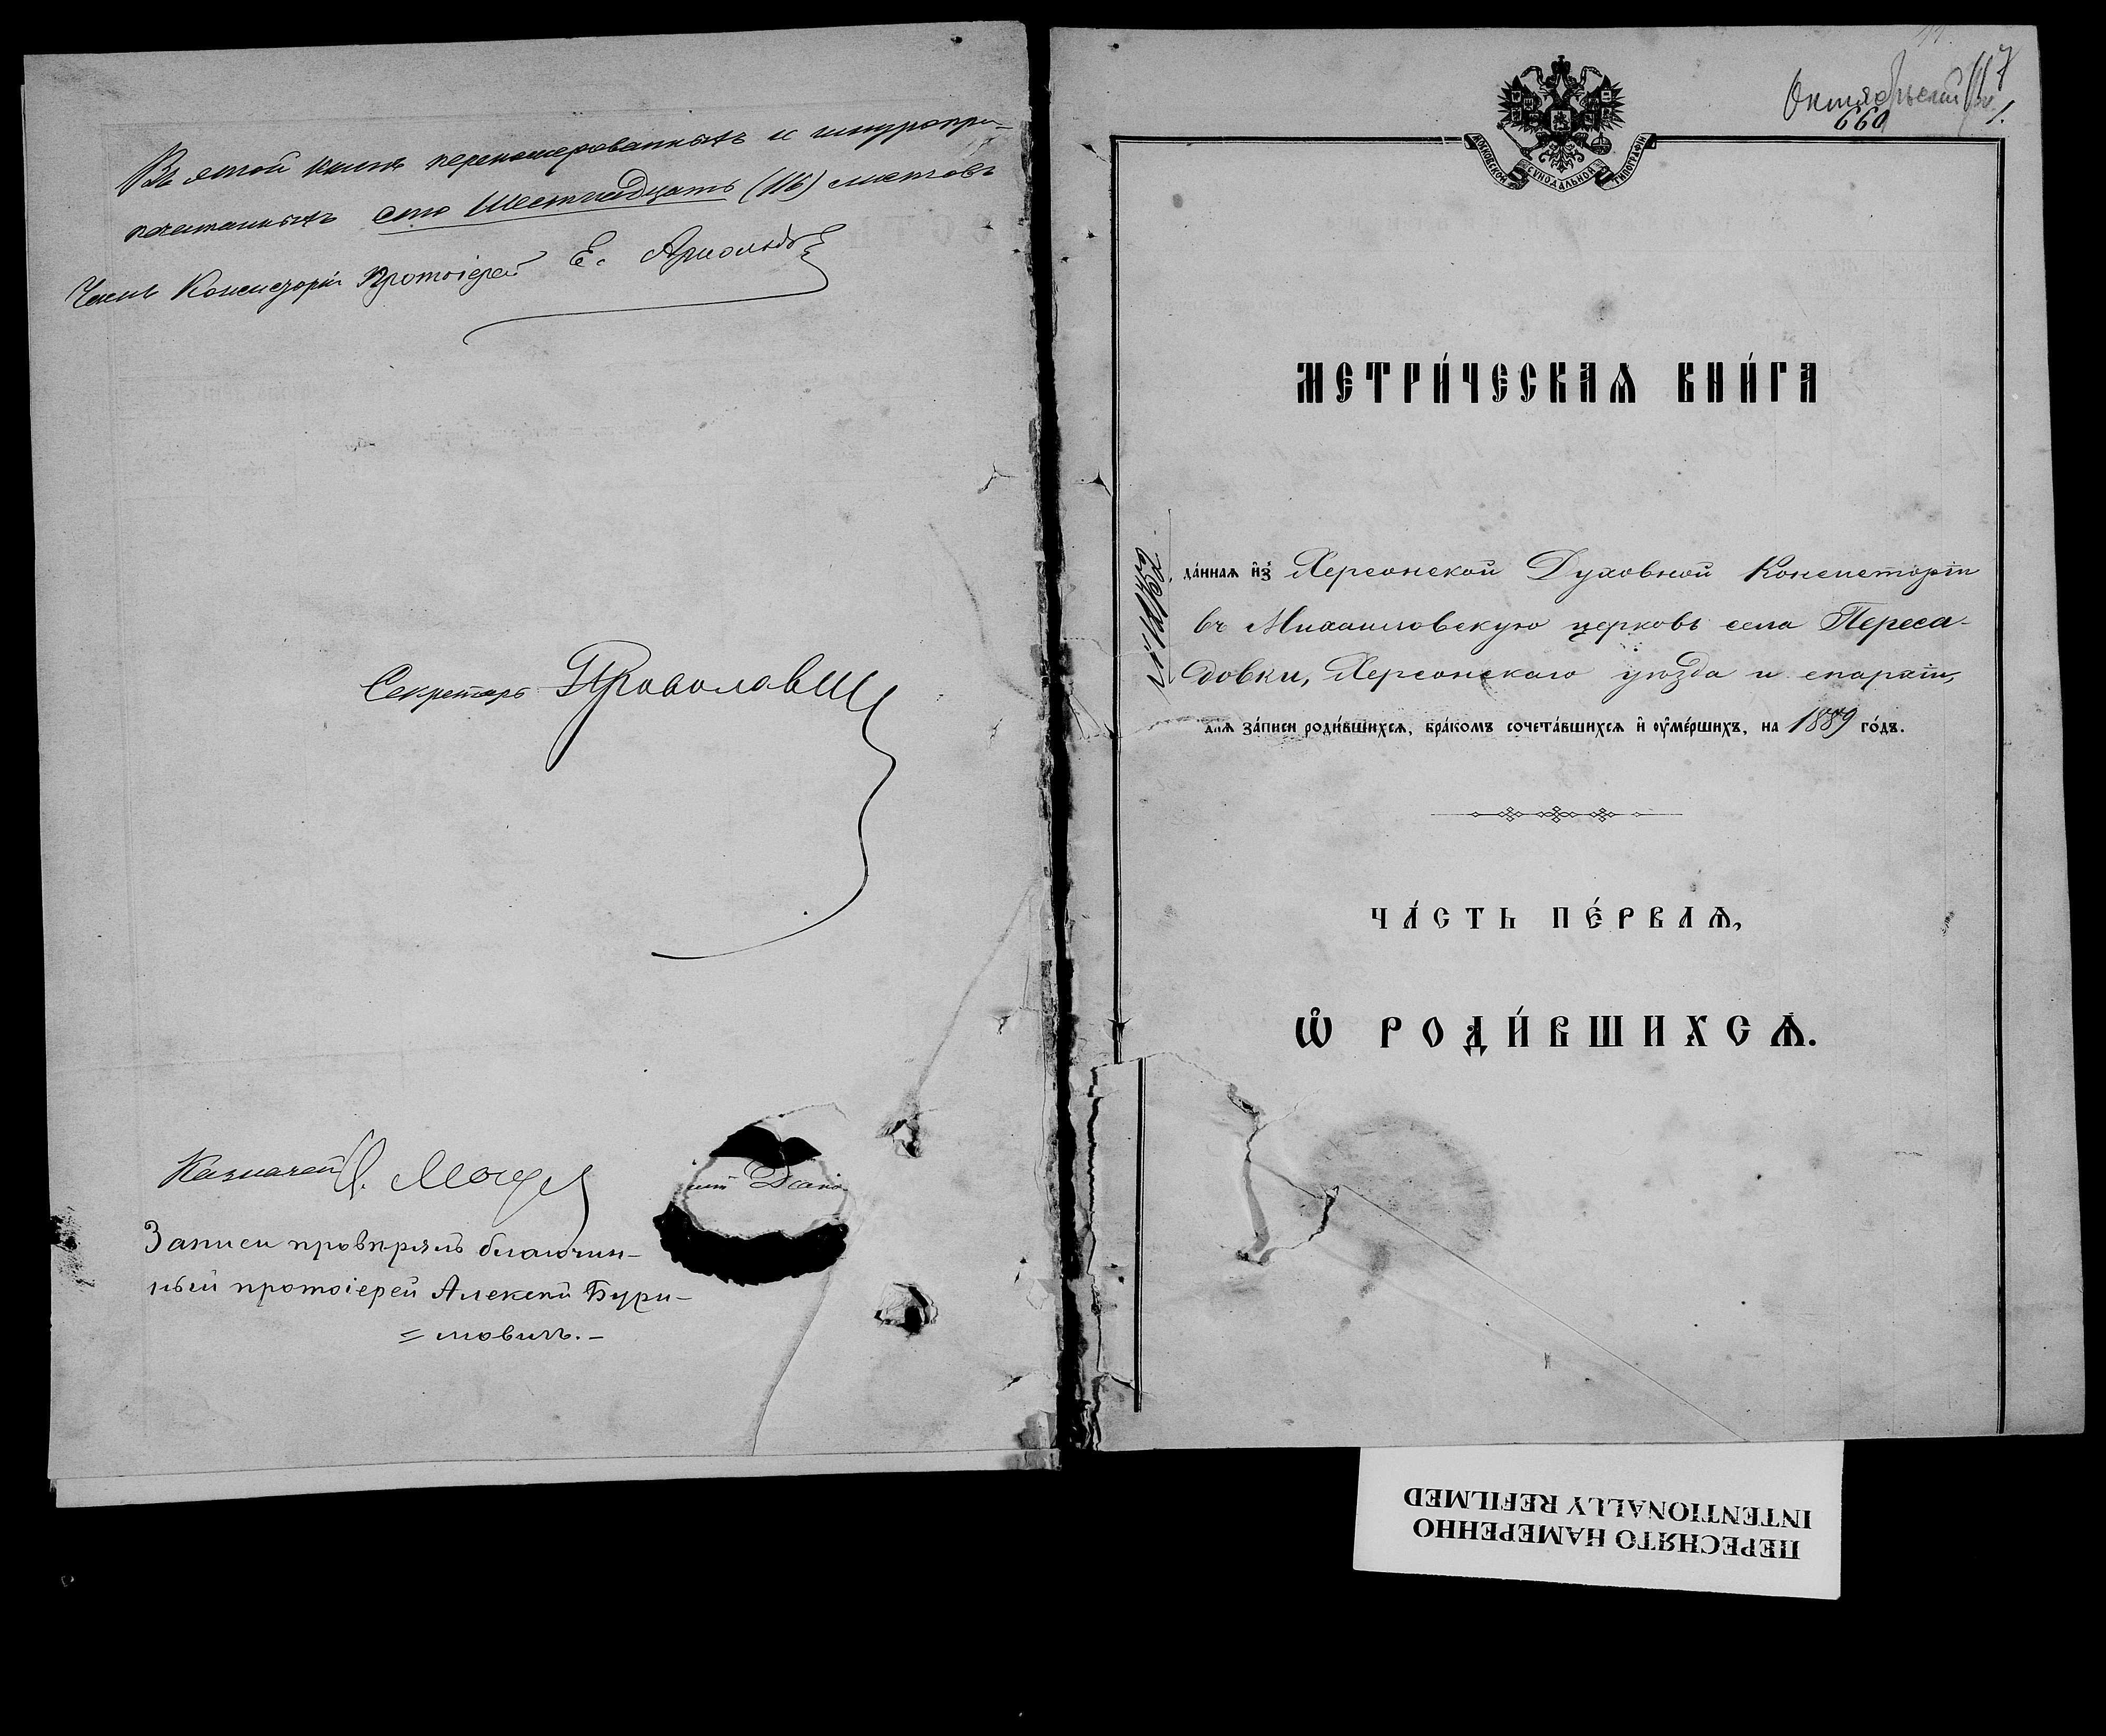 Въ этой книгѣ перенумерованныхъ и шнуропри-
печатанныхъ сто шестнадцать (116) листовъ
Членъ Консисторіи Протоіерей Е. Арнольдъ
Секретарь
Казначей
Записи провѣрялъ благочин-
ный протоіерей Алексѣй Бури-
=мовичъ.-
Октябрьский
117
660
МОСКОВСКОЙ СѴНОДАЛЬНОЙ ТИПОГРАФІИ
МЕТРИ́ЧЕСКАѦ КНИ́ГА
да́ннаѧ и҆з̾ Херсонской Духовной Консисторіи
въ Михайловскую церковь села Переса-
довки, Херсонскаго уѣзда и епархіи,
длѧ за́писи роди́вшихсѧ, бра́комъ сочета́вшихсѧ и҆ ᲂу҆ме́ршихъ, на 1889 го́дъ.
ЧА́СТЬ ПЕ́РВАѦ,
Ѽ РОДИ́ВШИХСѦ.
ПЕРЕСНЯТО НАМЕРЕННО
INTENTIONALLY REFILMED